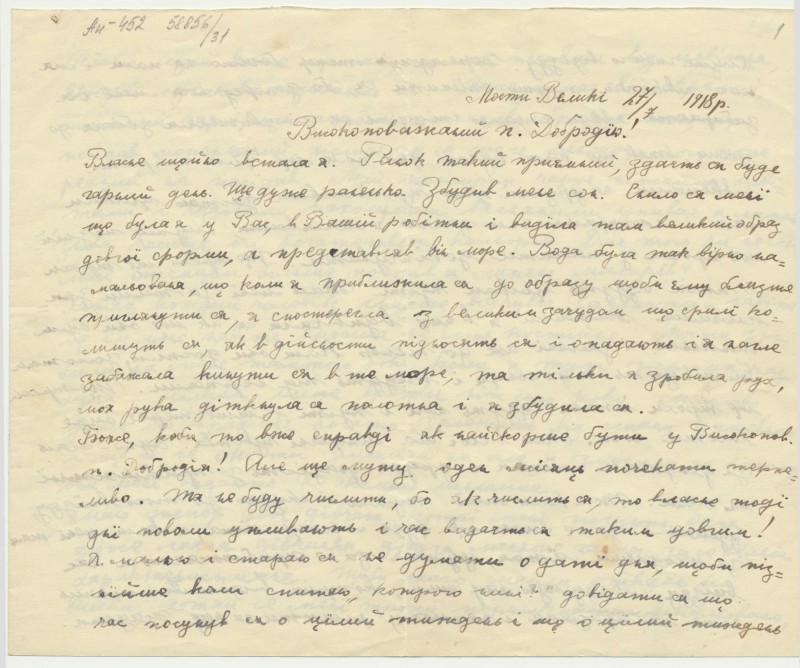 Ан-452 58856/31
1
Мости Великі 27/7 1918 р.
Високоповажаний п. Добродію!
Власне щойно встала я. Ранок такий приємний, здаєть ся буде
гарний день. Ще дуже раненько. Збудив мене сон. Снило ся мені
що була я у Вас, в Вашій робітни і виділа там великий образ
довгої форми, а представляв він море. Вода була так вірно на-
мальована, що коли я приближила ся до образу щоби ему близше
приглянути ся, я спостерегла з великим зачудом що филі ко-
лишуть ся, як в дійсности підносять ся і опадають і я нагле
забажала кинути ся в те море, та тільки я зробила рух,
моя рука діткнула ся полотна і я збудила ся.
Боже, коби то вже справді як найскорше бути у Високопов.
п. Добродія! Але ще мушу оден місяць почекати терпе-
ливо. Та не буду числити, бо як числить ся, то власне тоді
дні поволи упливають і час видаєть ся таким довгим!
Я малюю і стараю ся не думати о даті дня, щоби піз-
нійше коли спитаю, "котрого нині?" довідати ся що
час посунув ся о цілий тиждень і що о цілий тиждень